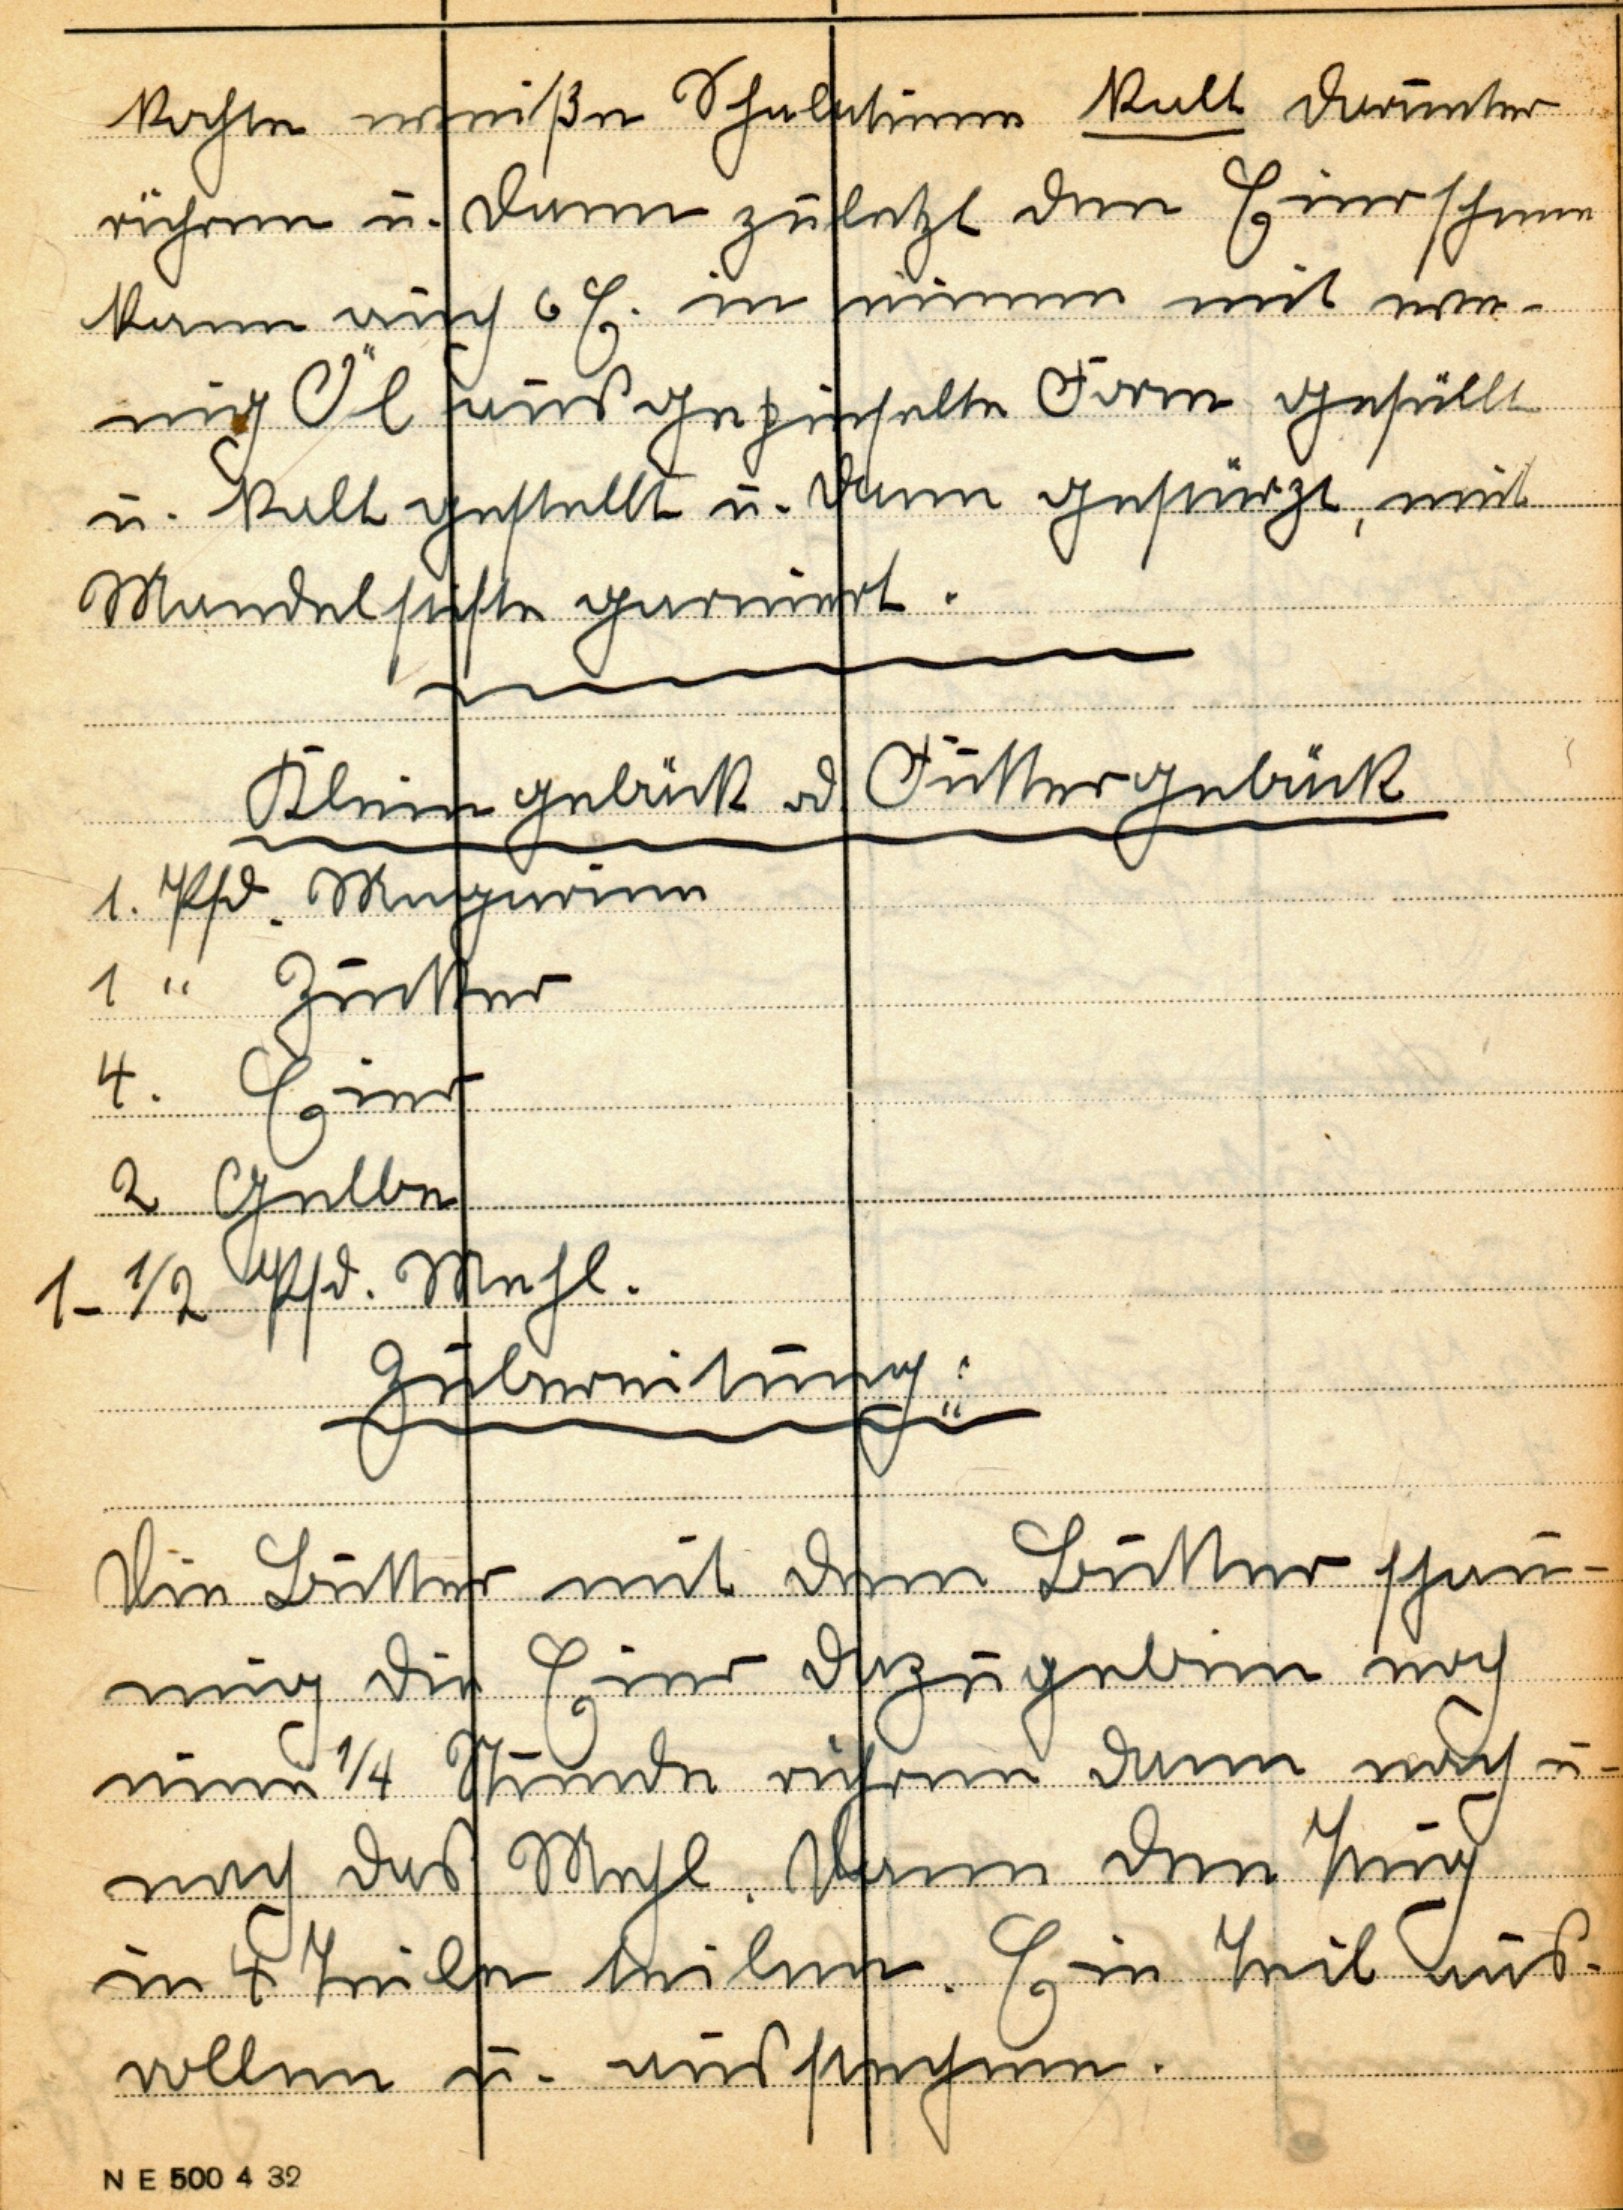 kochte weiße Schalatine kalt darunter
rühren u. dann zuletzt den Eierschnee
kann auch 6 E. in einen mit we-
nig Öl ausgepinselte Form gefüllt
u. kalt gestellt u. dann gestürzt, mit
Mandelstifte garniert.
Kleingebäck od. Futtergebäck
1. Pfd. Magarine
1 " Zucker
4. Eier
2 Gelbe
1-1/2 Pfd. Mehl.
Zubereitung:
Die Butter mit dem Butter schau-
mig die Eier dazugeben noch
eine 1/4 Stunde rühren dann nach u-
nach das Mehl. Dann den Teig
in 4 Teile teilen. Ein Teil aus-
rollen u. ausstechen.
N E 500 4 32